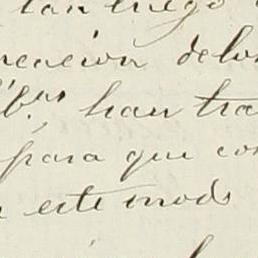 tan luego
reacion delos
han tra
para que con
este modo